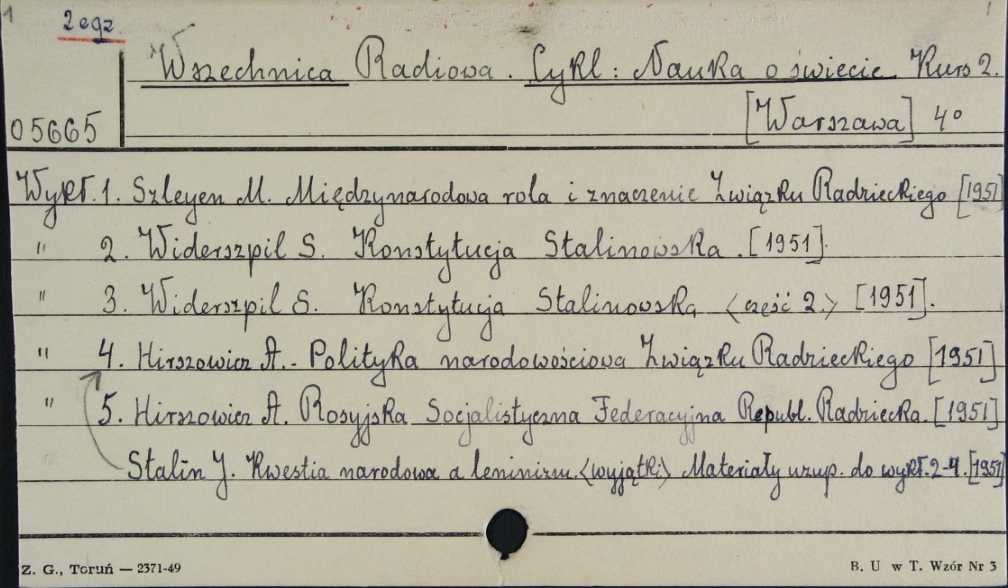 1
2 egz.
Wszechnica Radiowa. Cykl: Nauka o świecie Kurs 2.
05665 [Warszawa] 4°
Wykł. 1. Szleyen M. Międzynarodowa rola i znaczenie Związku Radzieckiego [1951]
" 2. Widerszpil S. Konstytucja Stalinowska. [1951].
" 3. Widerszpil S. Konstytucja Stalinowska <część 2.> [1951].
" 4. Hirszowicz A. - Polityka narodowościowa Związku Radzieckiego [1951]
" 5. Hirszowicz A. Rosyjska Socjalistyczna Federacyjna Republ. Radziecka. [1951]
Stalin J. Kwestia narodowa a leninizm. <wyjątki> Materiały uzup. do wykł. 2-4. [1951]
Z. G., Toruń — 2371-49 B. U w T. Wzór Nr 3